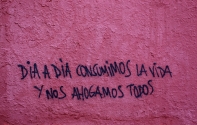 DIA A DIA CONSUMIMOS LA VIDA
Y NOS AHOGAMOS TODOS